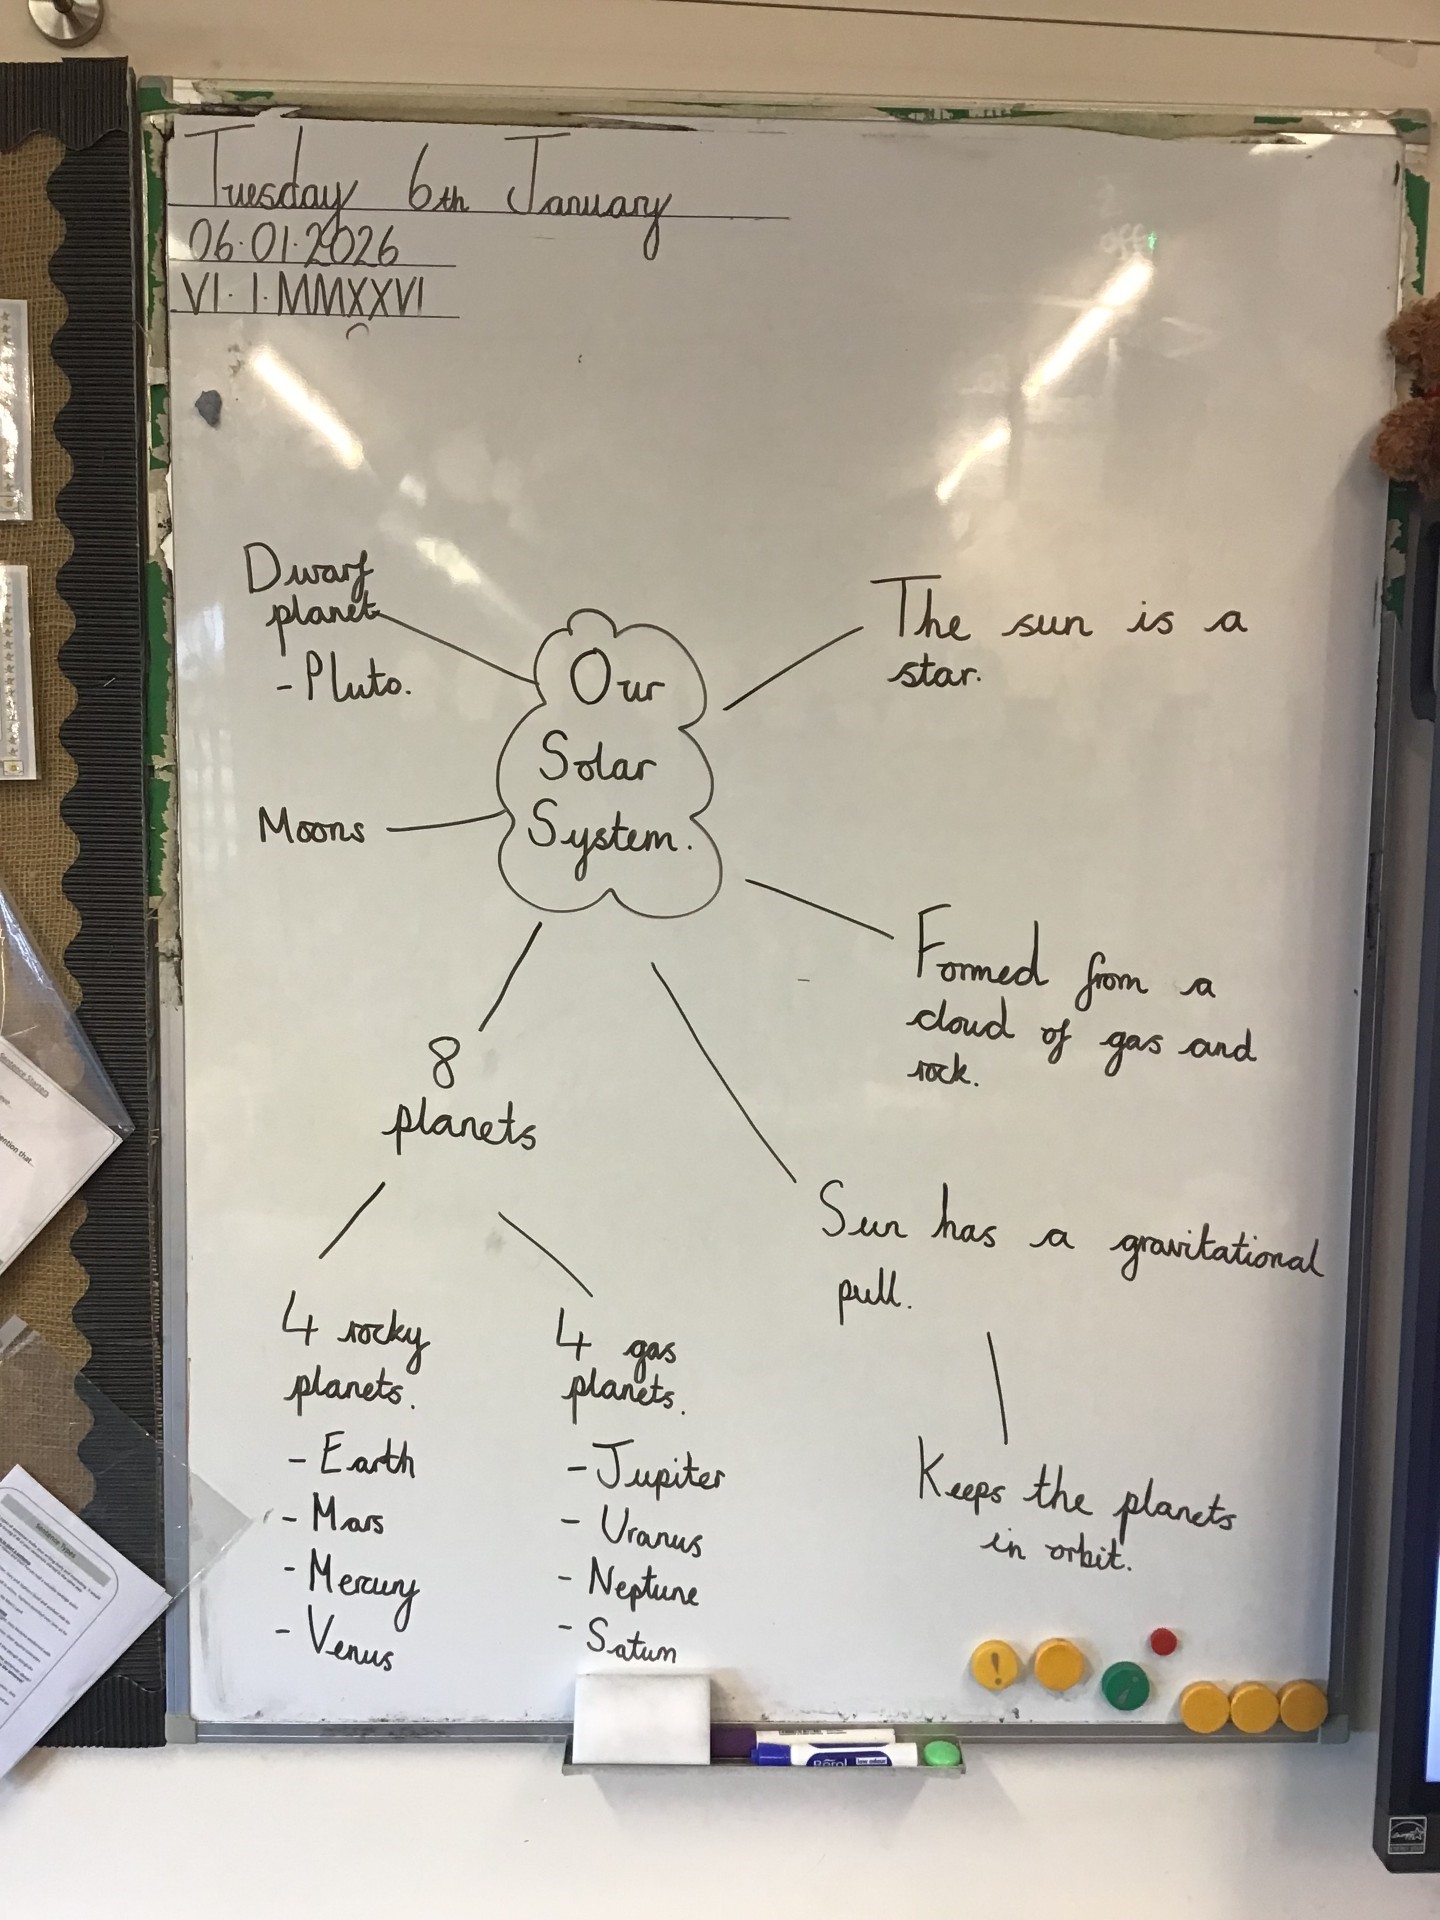 Tuesday 6th January
06.01.2026
VI. I. MMXXVI
Dwarf
planet
- Pluto.
Moons
Our
Solar
System.
The sun is a
star.
Formed from a
cloud of gas and
rock.
Sun has a gravitational
pull.
Keeps the planets
in orbit.
8
planets
4 rocky
planets.
- Earth
- Mars
- Mercury
- Venus
4 gas
planets.
- Jupiter
- Uranus
- Neptune
- Saturn
Sentence Starters
Sentence Types
Berol